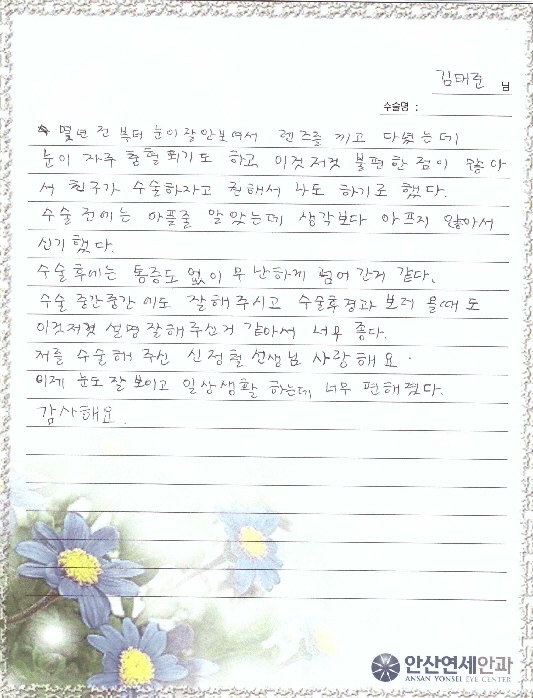 김태준 님
수술명 :
몇년 전 부터 눈이 잘 안보여서 렌즈를 끼고 다녔는데
눈이 자주 충혈되기도 하고, 이것저것 불편한 점이 많아
서 친구가 수술하자고 권해서 나도 하기로 했다.
수술 전에는 아플줄 알았는데 생각보다 아프지 않아서
신기했다.
수술후에는 통증도 없이 무난하게 넘어간거 같다.
수술 중간중간에도 잘해주시고 수술후 경과 보러 올때도
이것저것 설명 잘해주신거 같아서 너무 좋다.
저를 수술해 주신 신정철 선생님 사랑해요.
이제 눈도 잘 보이고 일상생활 하는데 너무 편해졌다.
감사해요.
안산연세안과
ANSAN YONSEI EYE CENTER